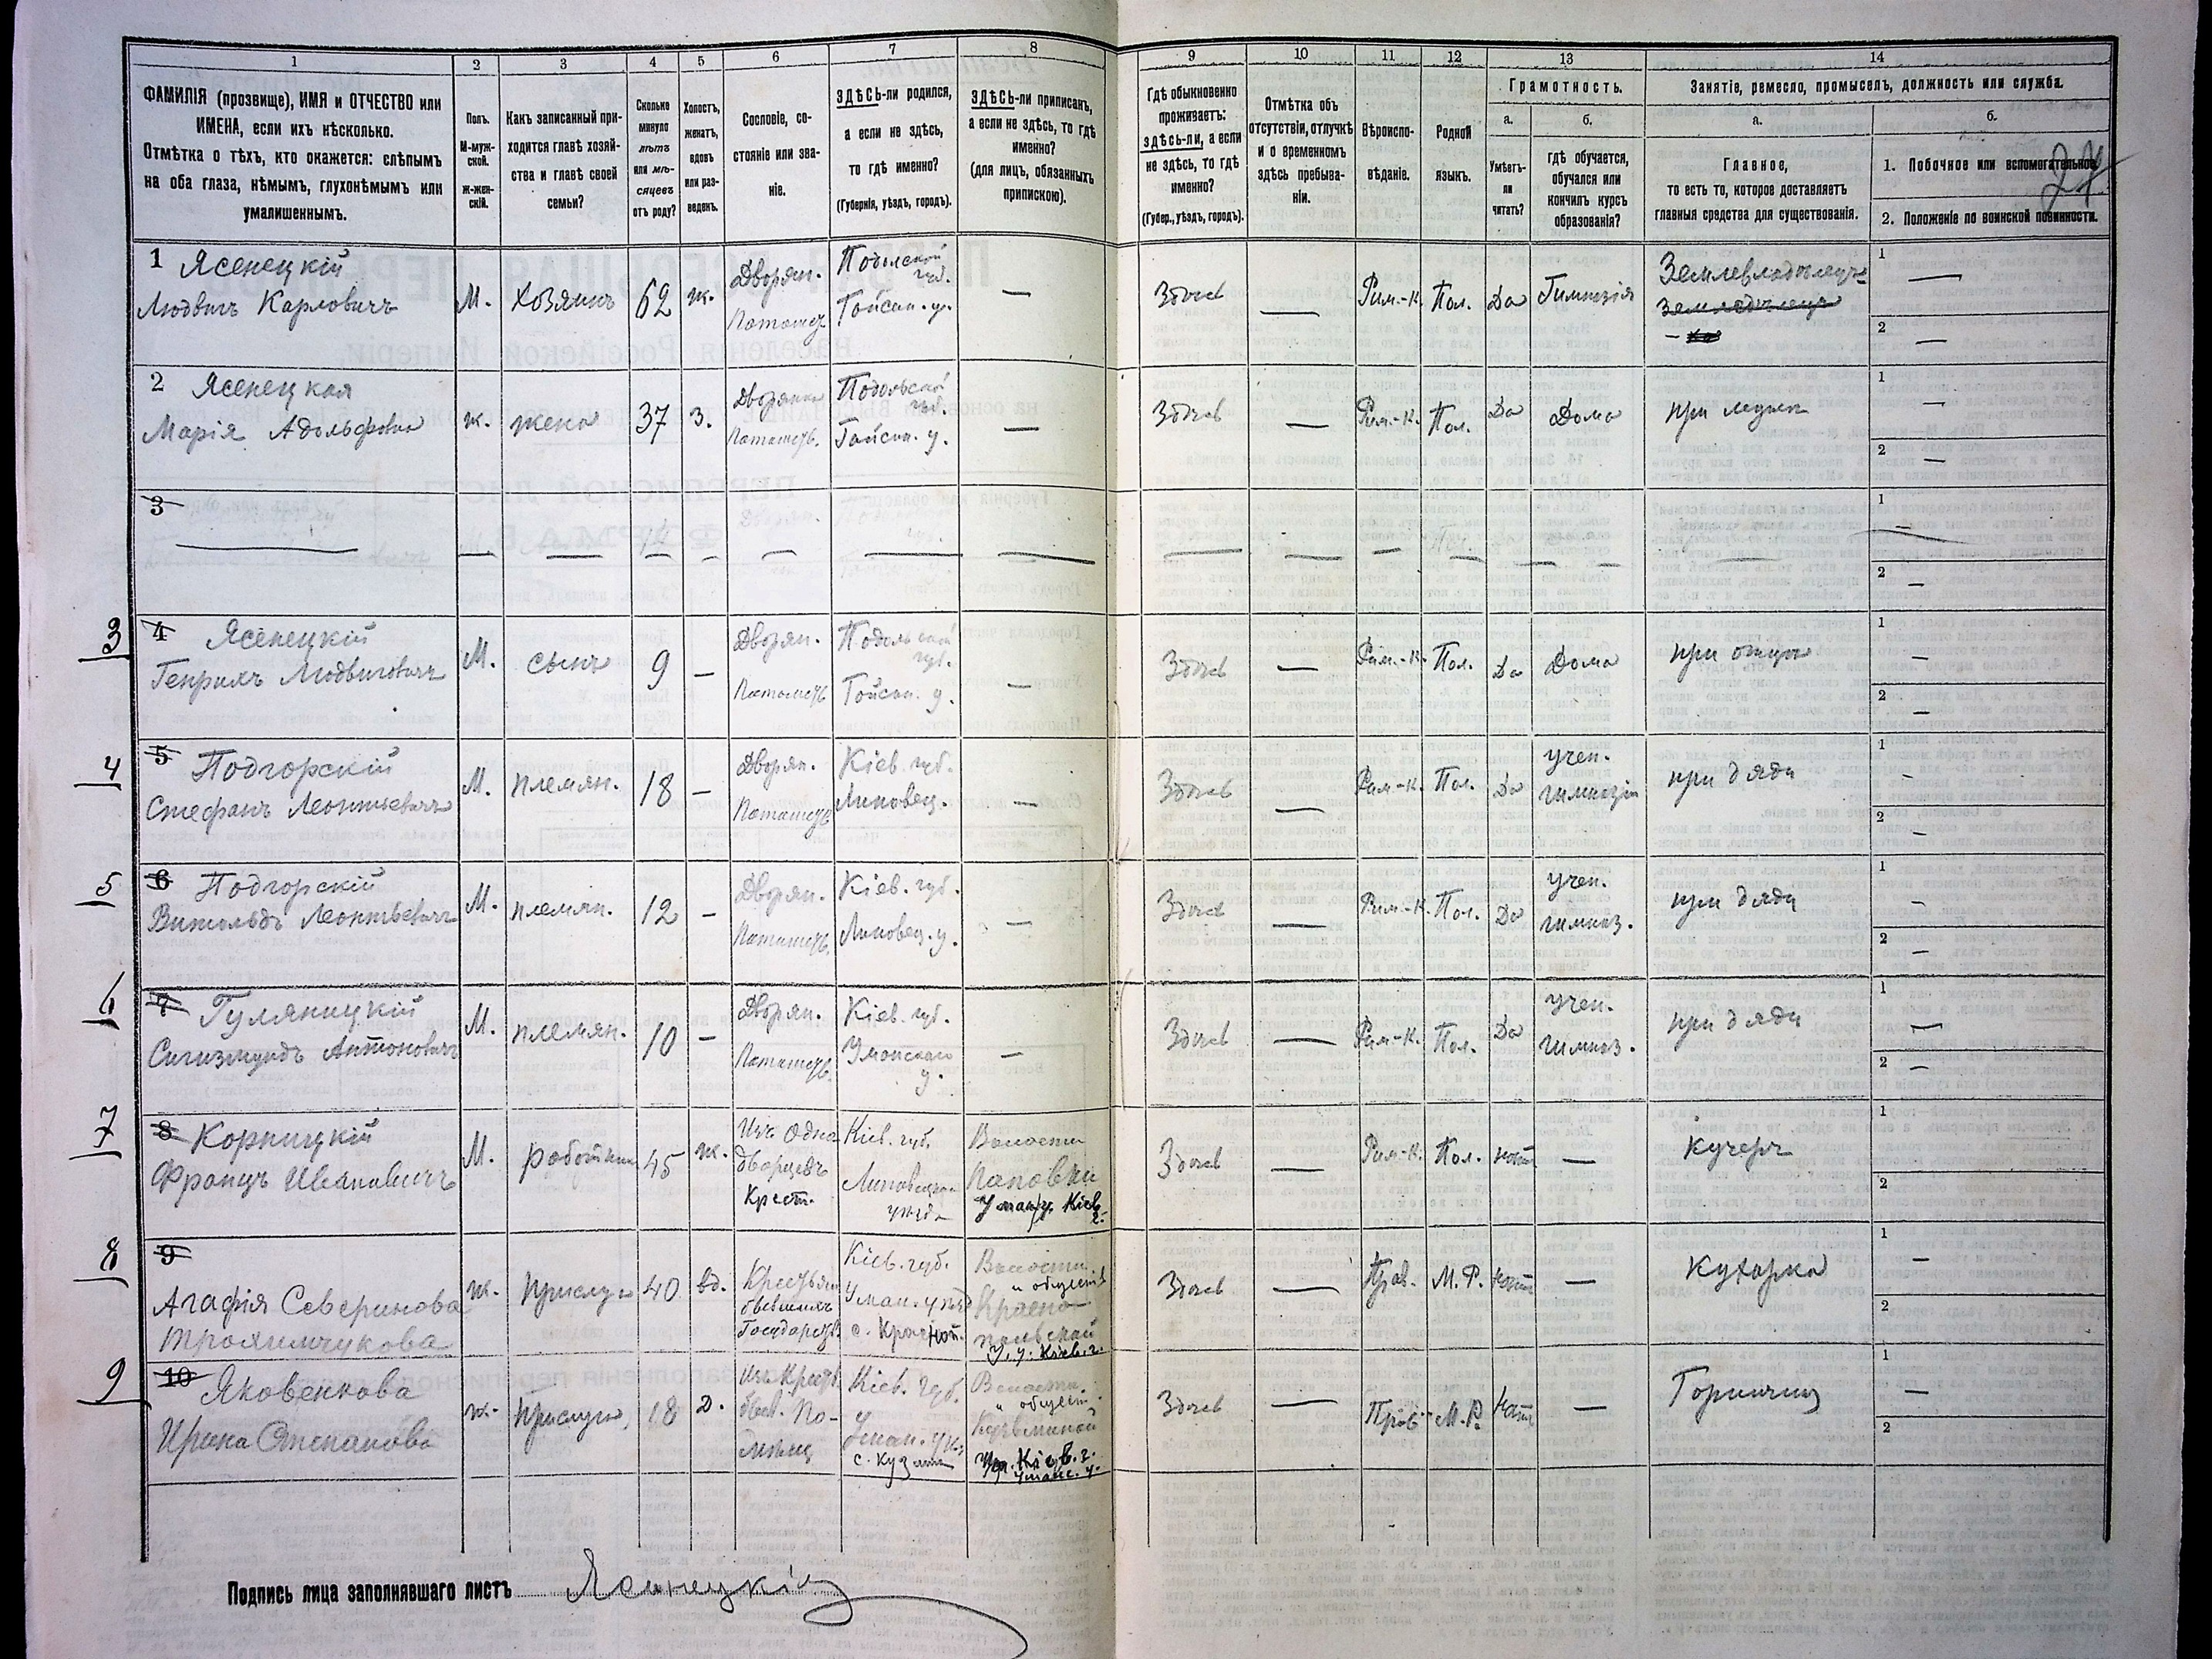 1
2
3
4
5
6
7
8
9
10
11
12
13
14
ФАМИЛІЯ (прозвище), ИМЯ и ОТЧЕСТВО или
ИМЕНА, если ихъ нѣсколько.
Отмѣтка о тѣхъ, кто окажется: слѣпымъ
на оба глаза, нѣмымъ, глухонѣмымъ или
умалишеннымъ.
Полъ.
М-муж-
ской.
ж-жен-
скій.
Какъ записанный при-
ходится главѣ хозяй-
ства и главѣ своей
семьи?
Сколько
минуло
лѣтъ
или мѣ-
сяцевъ
отъ роду?
Холостъ,
женатъ,
вдовъ
или раз-
веденъ.
Сословіе, со-
стояніе или зва-
ніе.
ЗДѢСЬ-ли родился,
а если не здѣсь,
то гдѣ именно?
(Губернія, уѣздъ, городъ).
ЗДѢСЬ-ли приписанъ,
а если не здѣсь, то гдѣ
именно?
(для лицъ, обязанныхъ
припискою).
Гдѣ обыкновенно
проживаетъ:
здѣсь-ли, а если
не здѣсь, то гдѣ
именно?
(Губер., уѣздъ, городъ).
Отмѣтка объ
отсутствіи, отлучкѣ
и о временномъ
здѣсь пребыва-
ніи.
Вѣроиспо-
вѣданіе.
Родной
языкъ.
Грамотность.
а.
Умѣетъ-
ли
читать?
б.
гдѣ обучается,
обучался или
кончилъ курсъ
образованія?
Занятіе, ремесло, промыселъ, должность или служба.
а.
Главное,
то есть то, которое доставляетъ
главныя средства для существованія.
б.
1. Побочное или вспомогательное.
2. Положеніе по воинской повинности.
1 Ясенецкій
Людвигъ Карловичъ
М.
Хозяинъ
62
ж.
Дворян.
Потомств.
Подольской
губ.
Гайсин. у.
—
Здѣсь
—
Рим.-К.
Пол.
Да
Гимназія
Землевладѣлецъ
1 —
2 —
2 Ясенецкая
Марія Адольфовна
ж.
жена
37
З.
Дворянка
Потомств.
Подольской
губ.
Гайсин. у.
—
Здѣсь
—
Рим.-К.
Пол.
Да
Дома
при мужѣ
1 —
2 —
3
1 —
2 —
3
4 Ясенецкій
Генрихъ Людвиговичъ
М.
сынъ
9
—
Дворян.
Потомств.
Подольской
губ.
Гайсин. у.
—
Здѣсь
—
Рим.-К.
Пол.
Да
Дома
при отцѣ
1 —
2 —
4
5 Подгорскій
Стефанъ Леонтьевичъ
М.
племян.
18
—
Дворян.
Потомств.
Кіев. губ.
Липовец.
—
Здѣсь
—
Рим.-К.
Пол.
Да
учен.
гимназіи
при дядѣ
1 —
2 —
5
6 Подгорскій
Витольдъ Леонтьевичъ
М.
племян.
12
—
Дворян.
Потомств.
Кіев. губ.
Липовец. у.
—
Здѣсь
—
Рим.-К.
Пол.
Да
учен.
гимназ.
при дядѣ
1 —
2 —
6
7 Гуляницкій
Сигизмундъ Антоновичъ
М.
племян.
10
—
Дворян.
Потомств.
Кіев. губ.
Уманскаго
у.
—
Здѣсь
—
Рим.-К.
Пол.
Да
учен.
гимназ.
при дядѣ
1 —
2 —
7
8 Корницкій
Францъ Ивановичъ
М.
работник
45
ж.
Изъ Одно
дворцевъ
Крест.
Кіев. губ.
Липовецка
уѣзда
Волости
Поповки
Уман. у. Кіев.
г.
Здѣсь
—
Рим.-К.
Пол.
нѣтъ
—
кучеръ
1
2
8
9
Агафія Северинова
Троямчукова
ж.
прислуга
40
вд.
Крестьян
бывшихъ
Государств
Кіев. губ.
Уман. уѣз
с. Краснопол.
Волости
и обществ
Красно-
польской
У. у. Кіев. г.
Здѣсь
—
Прав.
М. Р.
нѣтъ
—
Кухарка
1 —
2
9
10 Яковенкова
Ирина Степанова
ж.
прислуга
18
Д.
Изъ Крест
быв. По-
мѣщ
Кіев. губ.
Уман. уѣз
с. Кузмин
Волости
и обществ
Кузьминой
Кіев. г.
Уманс. у.
Здѣсь
—
Прав.
М. Р.
нѣтъ
—
Горничная
1 —
2
Подпись лица заполнявшаго листъ Ясенецкій